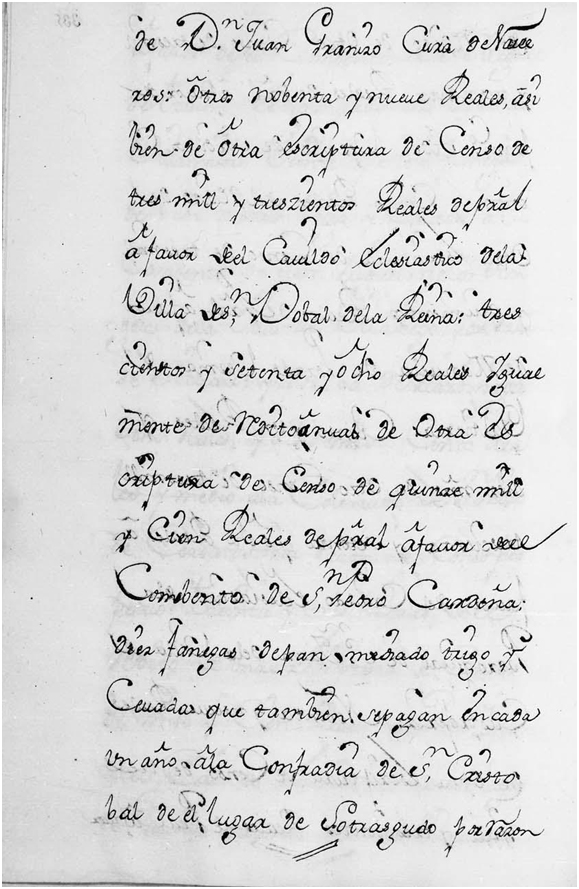 de D.n Juan Granizo Cura de Narre
ros: Otros nobenta y nueve Reales, asi
bien de Otra escriptura de Censo de
tres mill y treszientos Reales de pral
a favor del Cavildo Eclesiastico dela
Villa de S.n Dobal dela Reina: tres
cientos y setenta y Ocho Reales Yguae
mente de Redito anual de Otra Es
criptura de Censo de quinze mill
y Cien Reales de pral a favor del
Combento de S.n Pedro Cardeña:
diez fanegas de pan mediado trigo y
Cevada que tambien se pagan en cada
un año, ala Confradia de S.n Cristo
bal de el lugar de Sotragudo por razon